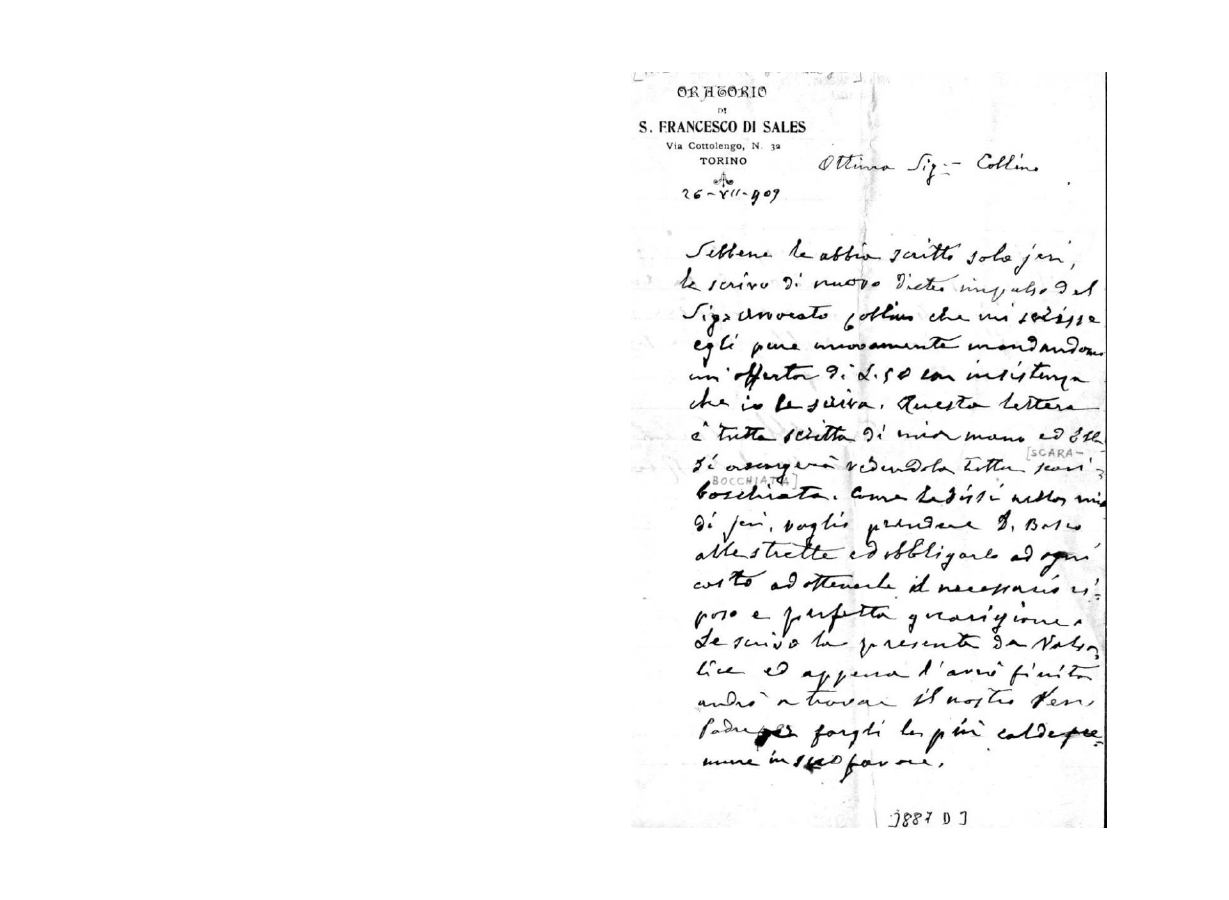 ORATORIO
DI
S. FRANCESCO DI SALES
Via Cottolengo, N. 32
TORINO
26-VII-909
Ottima Sig.- Collino
Sebbene le abbia scritto solo jeri,
le scrivo di nuovo dietro impulso del
Sigr Avvocato Collino che mi scrisse
egli pure nuovamente mandandomi
un'offerta di L. 50 con insistenza
che io le scriva. Questa lettera
è tutta scritta di mia mano ed Ella
[SCARA-
si accorgerà vedendola tutta scari-
BOCCHIATA]
bocchiata. Come le dissi nella mia
di jeri, voglio prendere D. Bosco
alle strette ed obbligarlo ad ogni
costo ad ottenerle il necessario ri-
poso e perfetta guarigione.
Le scrivo la presente da Valsa-
lice ed appena l'avrò finita
andrò a trovare il nostro Ven.
Padre per fargli le più calde pre-
mure in suo favore.
]887 D ]